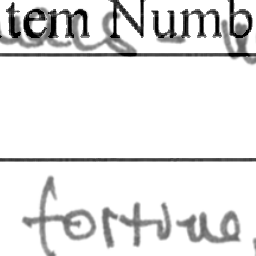 tem Numb
fortune,